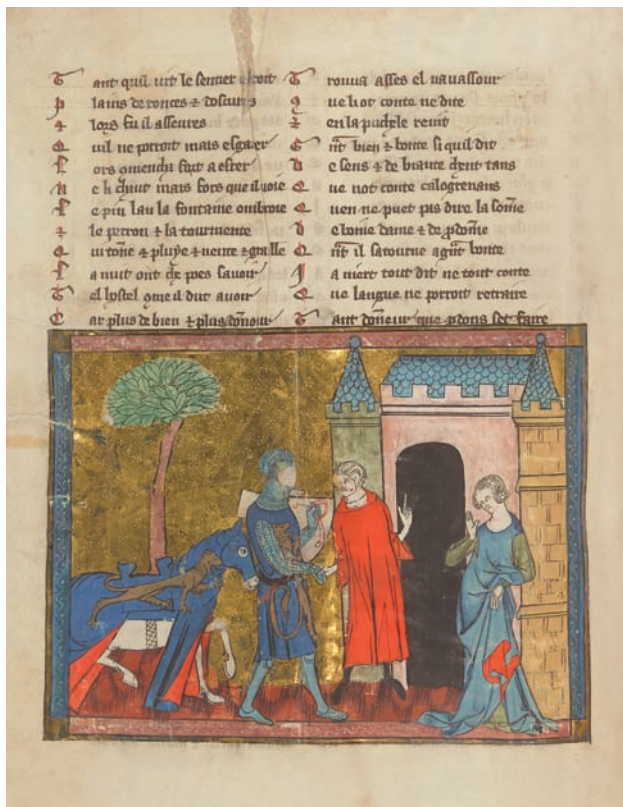 T ant quil vit le sentier estroit
P lains de ronces & doscurs
& lors fu il asseures
Q uil ne porroit mais esgarer
F ors a ester
N e li mais fors que il voie
L e pin la fontaine ombroie
& le perron & la tourmente
Q ui tone & pluye & vente & gralle
L a nuit ont ce poes savoir
T el hostel que il dut avoir
C ar plus de bien & plus donour
T rouva asses el vavassour
Q ue li ot conte ne dite
& en la pucele revit
G nt bien & bonte si quil dit
D e sens & de biaute chent tans
Q ue not conte calogrenans
Q uen ne puet pas dire la some
D e bone dame & de pdome
Q nt il satourne a gnt bonte
J a niert tout dit ne tout conte
Q ue langue ne porroit retraire
T ant doneur que pdons set faire